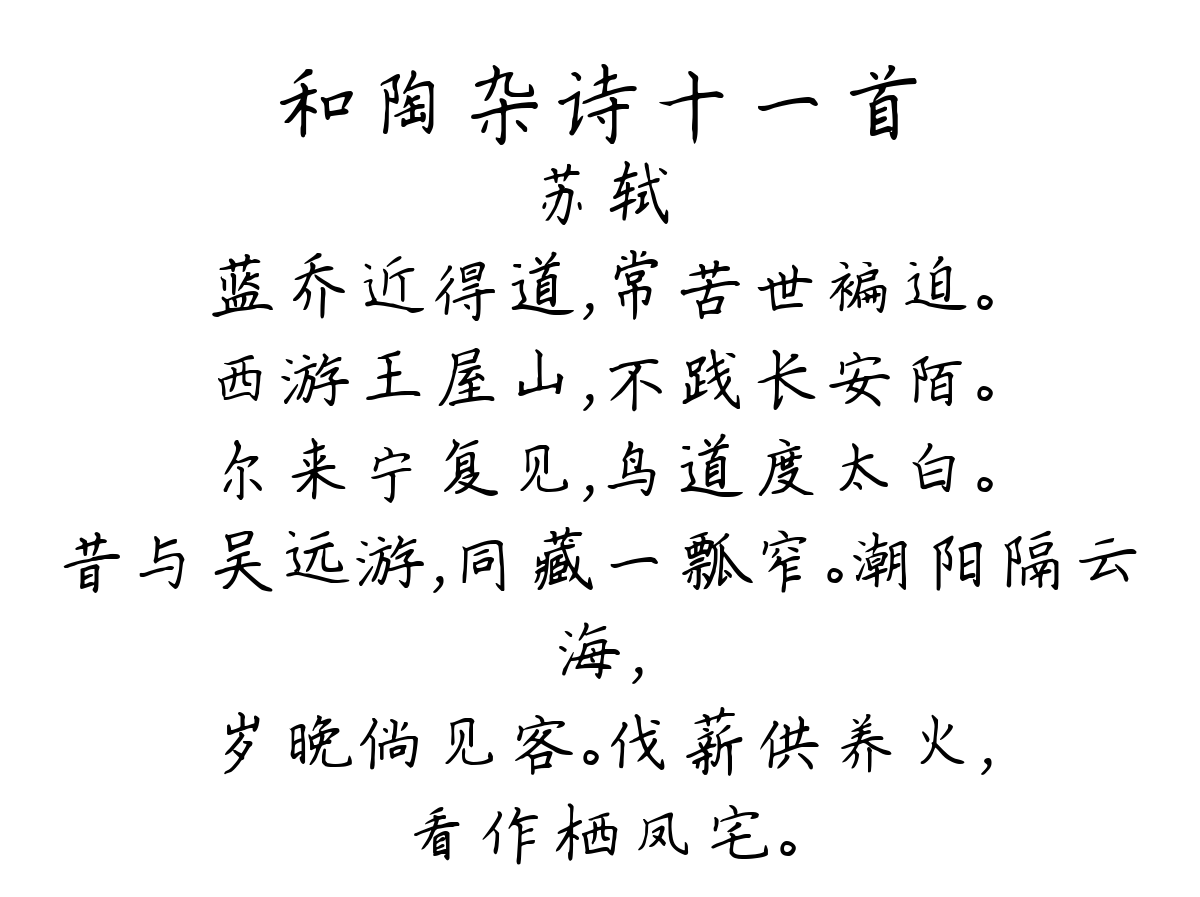 和陶杂诗十一首
苏轼
蓝乔近得道,常苦世褊迫。
西游王屋山,不践长安陌。
尔来宁复见,鸟道度太白。
昔与吴远游,同藏一瓢窄。潮阳隔云
海,
岁晚倘见客。伐薪供养火,
看作栖凤宅。